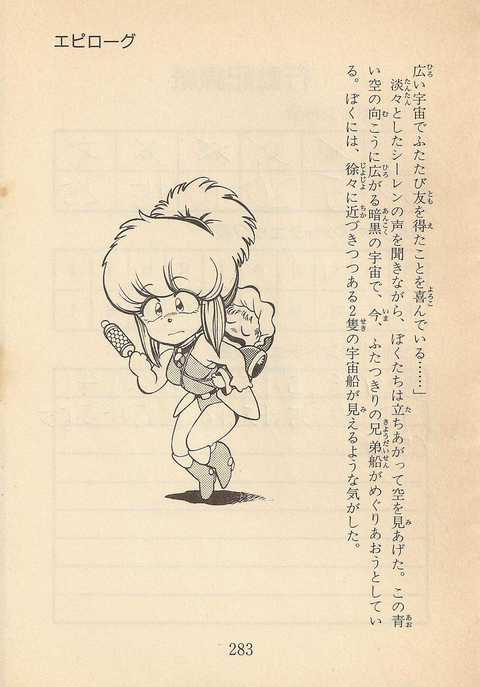 エピローグ
広い宇宙でふたたび友を得たことを喜んでいる……」
淡々としたシーレンの声を聞きながら、ぼくたちは立ちあがって空を見あげた。この青
い空の向こうに広がる暗黒の宇宙で、今、ふたつきりの兄弟船がめぐりあおうとしてい
る。ぼくには、徐々に近づきつつある2隻の宇宙船が見えるような気がした。
283